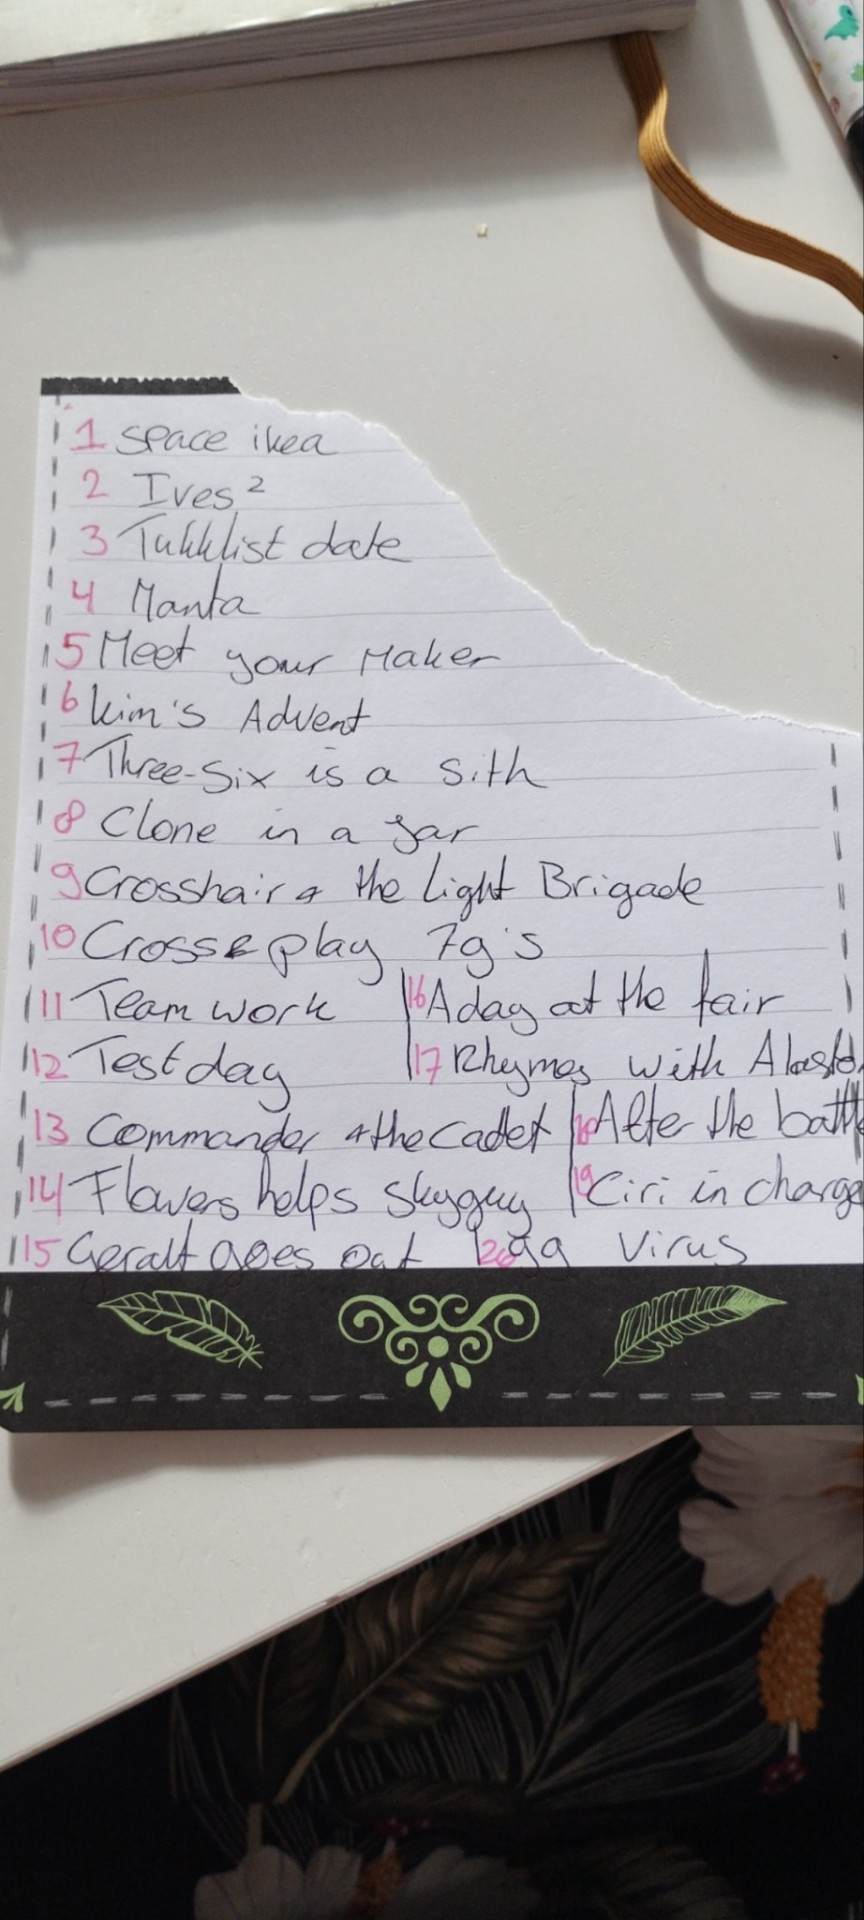 1 space ikea
2 Ives²
3 Tukklist date
4 Manta
5 Meet your Maker
6 Kim's Advent
7 Three-Six is a Sith
8 Clone in a Jar
9 Crosshair & the Light Brigade
10 Cross & play 7g's
11 Team work
12 Test day
13 Commander & the Cadet
14 Flowers helps Skyguy
15 Geralt goes out
16 A day at the fair
17 Rhymes with
18 After the
19 Ciri in charge
20 99 Virus